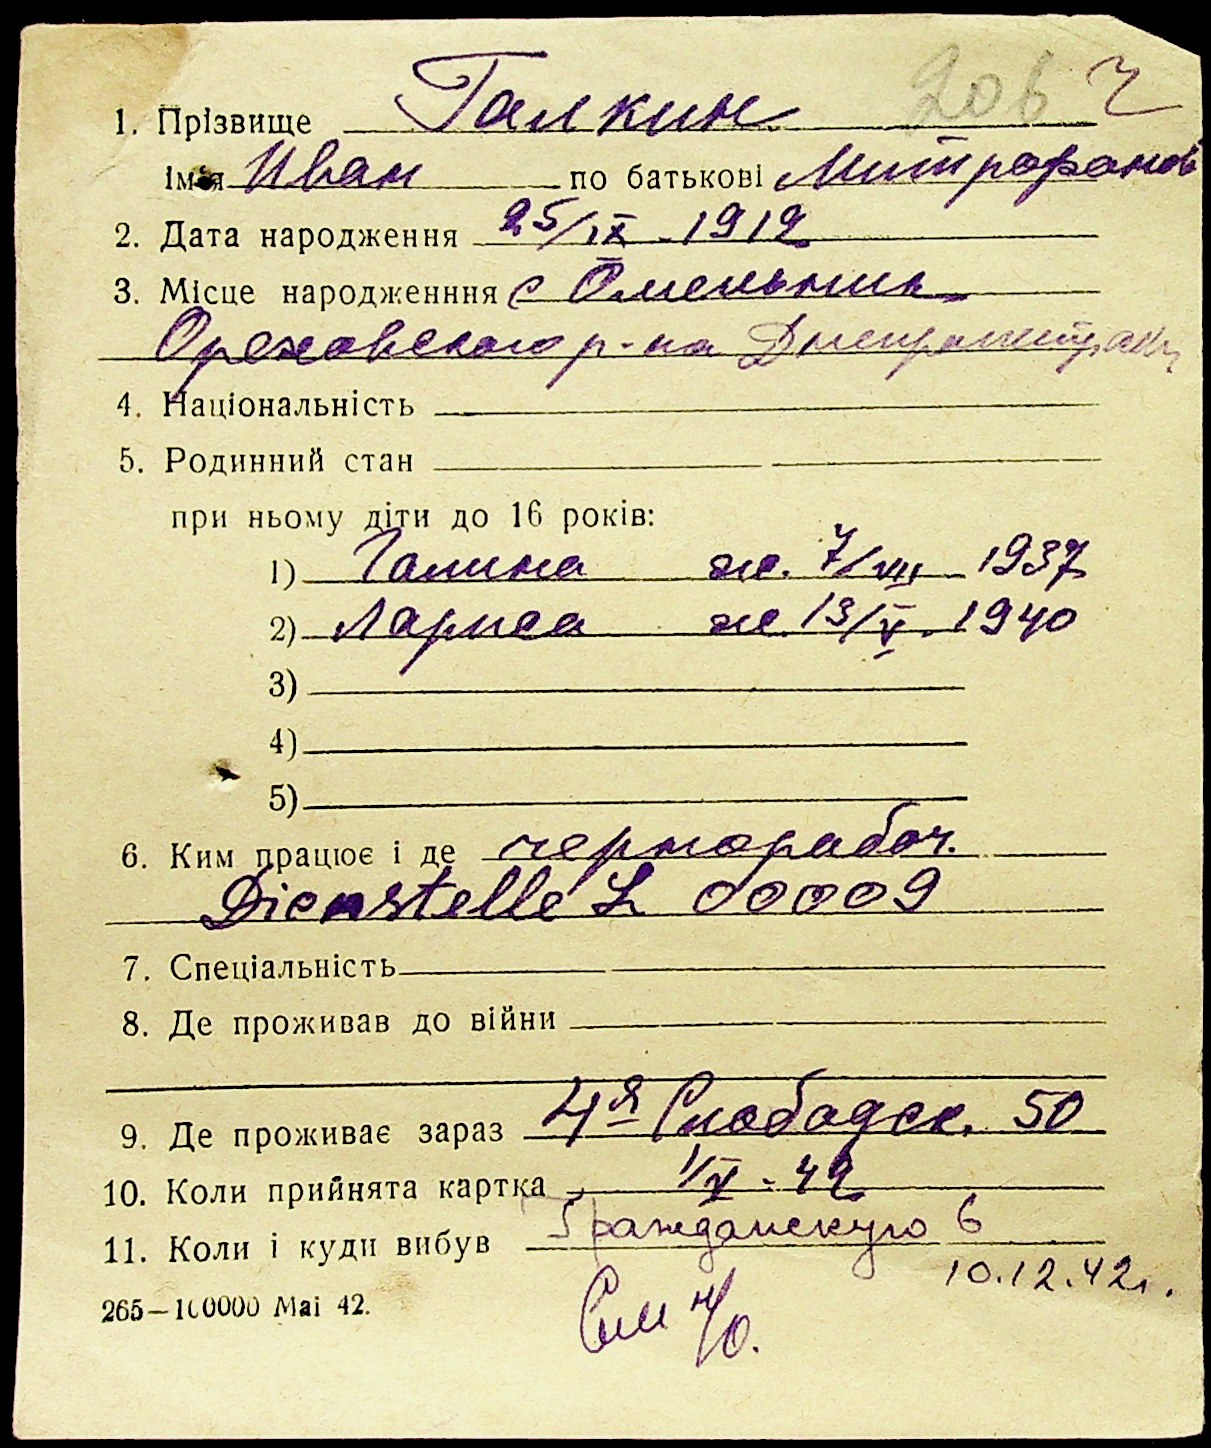 206 ч
1. Прізвище Галкин
ім'я Иван по батькові Митрофанов
2. Дата народження 25/IX - 1912
3. Місце народженння с Омельник
Ореховского р-на
4. Національність
5. Родинний стан
при ньому діти до 16 років:
1) Галина ж. 7/VIII 1937
2) Лариса ж. 13/V. 1940
3)
4)
5)
6. Ким працює і де чернорабоч.
Dienstelle L 00009
7. Спеціальність
8. Де проживав до війни
9. Де проживає зараз 4я Слободск. 50
10. Коли прийнята картка 1/V - 42
11. Коли і куди вибув Гражданскую 6
10.12.42г.
265—100000 Mai 42.
См н/о.